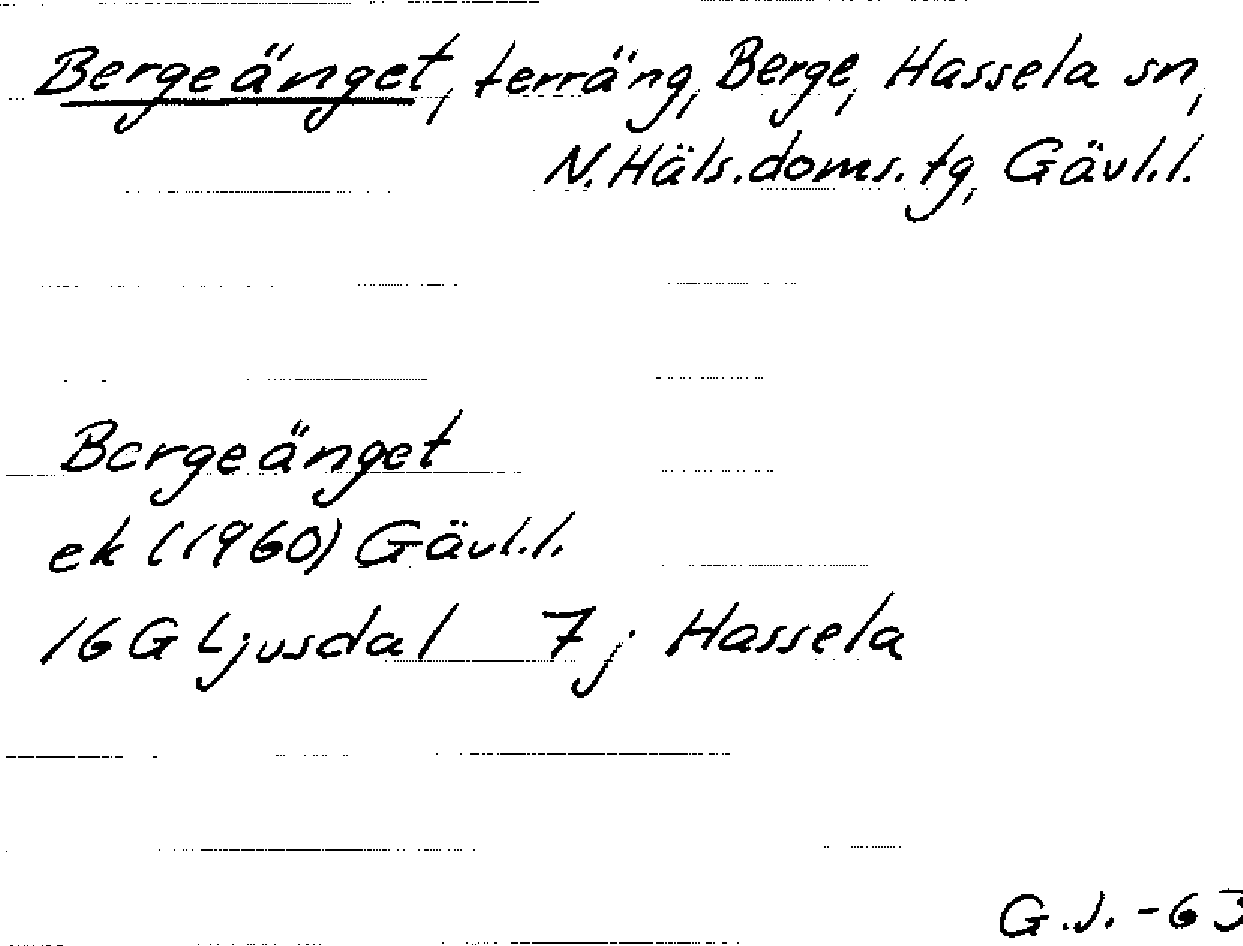 Bergeänget, terräng, Berge, Hassela sn,
N. Häls. doms. tg, Gävl.l.
Bergeänget
ek (1960) Gävl.l.
16 G Ljusdal 7 j Hassela
G.J. -63